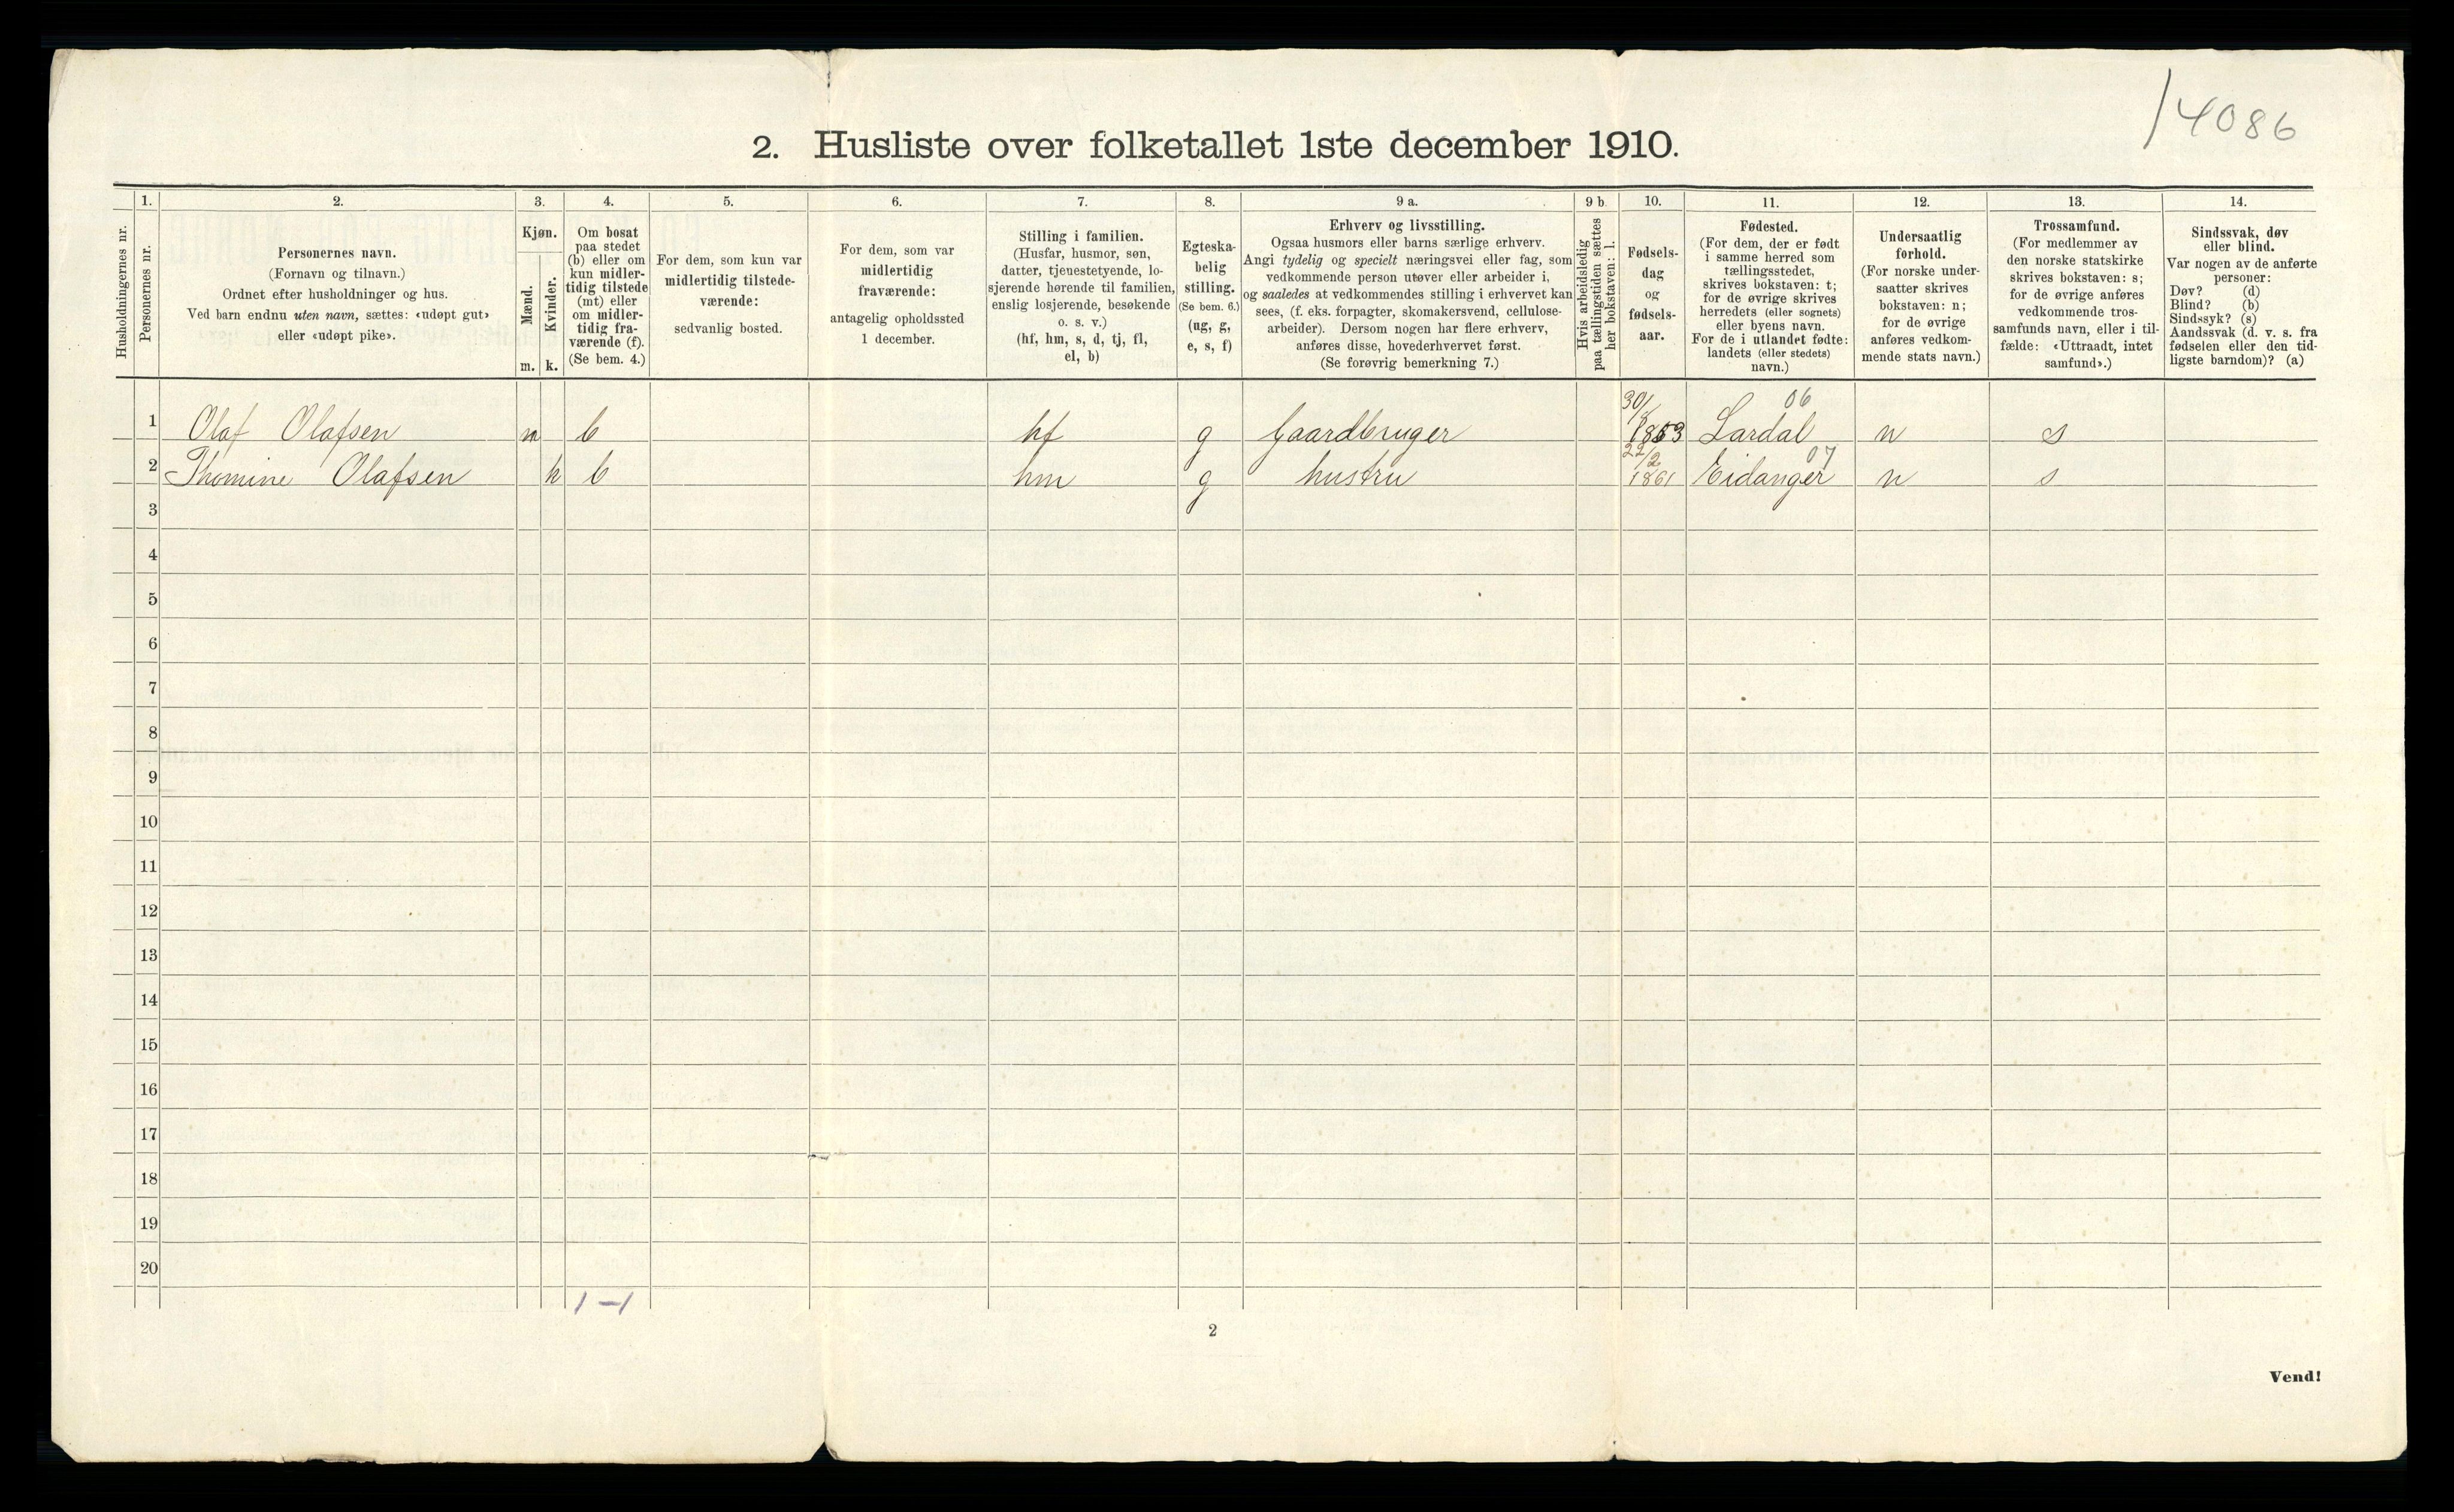 14086
2. Husliste over folketallet 1ste december 1910.
Husholdningernes nr.
1.
Personernes nr.
2.
Personernes navn.
(Fornavn og tilnavn.)
Ordnet efter husholdninger og hus.
Ved barn endnu uten navn, sættes: «udøpt gut»
eller «udøpt pike».
3.
Kjøn.
Mænd.
m.
Kvinder.
k.
4.
Om bosat
paa stedet
(b) eller om
kun midler-
tidig tilstede
(mt) eller
om midler-
tidig fra-
værende (f).
(Se bem. 4.)
5.
For dem, som kun var
midlertidig tilstede-
værende:
sedvanlig bosted.
6.
For dem, som var
midlertidig
fraværende:
antagelig opholdssted
1 december.
7.
Stilling i familien.
(Husfar, husmor, søn,
datter, tjenestetyende, lo-
sjerende hørende til familien,
enslig losjerende, besøkende
o. s. v.)
(hf, hm, s, d, tj, fl,
el, b)
8.
Egteska-
belig
stilling.
(Se bem. 6.)
(ug, g,
e, s, f)
9 a.
Erhverv og livsstilling.
Ogsaa husmors eller barns særlige erhverv.
Angi tydelig og specielt næringsvei eller fag, som
vedkommende person utøver eller arbeider i,
og saaledes at vedkommendes stilling i erhvervet kan
sees, (f. eks. forpagter, skomakersvend, cellulose-
arbeider). Dersom nogen har flere erhverv,
anføres disse, hovederhvervet først.
(Se forøvrig bemerkning 7.)
9 b
Hvis arbeidsledig
paa tællingstiden sættes
her bokstaven: l.
10.
Fødsels-
dag
og
fødsels-
aar.
11.
Fødested.
(For dem, der er født
i samme herred som
tællingsstedet,
skrives bokstaven: t;
for de øvrige skrives
herredets (eller sognets)
eller byens navn.
For de i utlandet fødte:
landets (eller stedets)
navn.)
12.
Undersaatlig
forhold.
(For norske under-
saatter skrives
bokstaven: n;
for de øvrige
anføres vedkom-
mende stats navn.)
13.
Trossamfund.
(For medlemmer av
den norske statskirke
skrives bokstaven: s;
for de øvrige anføres
vedkommende tros-
samfunds navn, eller i til-
fælde: «Uttraadt, intet
samfund».)
14.
Sindssvak, døv
eller blind.
Var nogen av de anførte
personer:
Døv? (d)
Blind? (b)
Sindssyk? (s)
Aandssvak (d. v. s. fra
fødselen eller den tid-
ligste barndom)? (a)
1 Olaf Olafsen m b hf g Gaardbruger 30/8 1853 Lardal 06 n s
2 Thomine Olafsen k b hm g hustru 22/2 1861 Eidanger 07 n s
3
4
5
6
7
8
9
10
11
12
13
14
15
16
17
18
19
20
1-1
2
Vend!